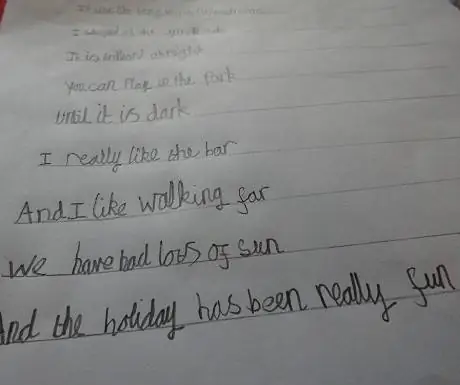 It
I at the
It is brilliant alright
you can play in the Park
until it is dark
I really like the bar
And I like walking far
We have had lots of sun
And the holiday has been really fun